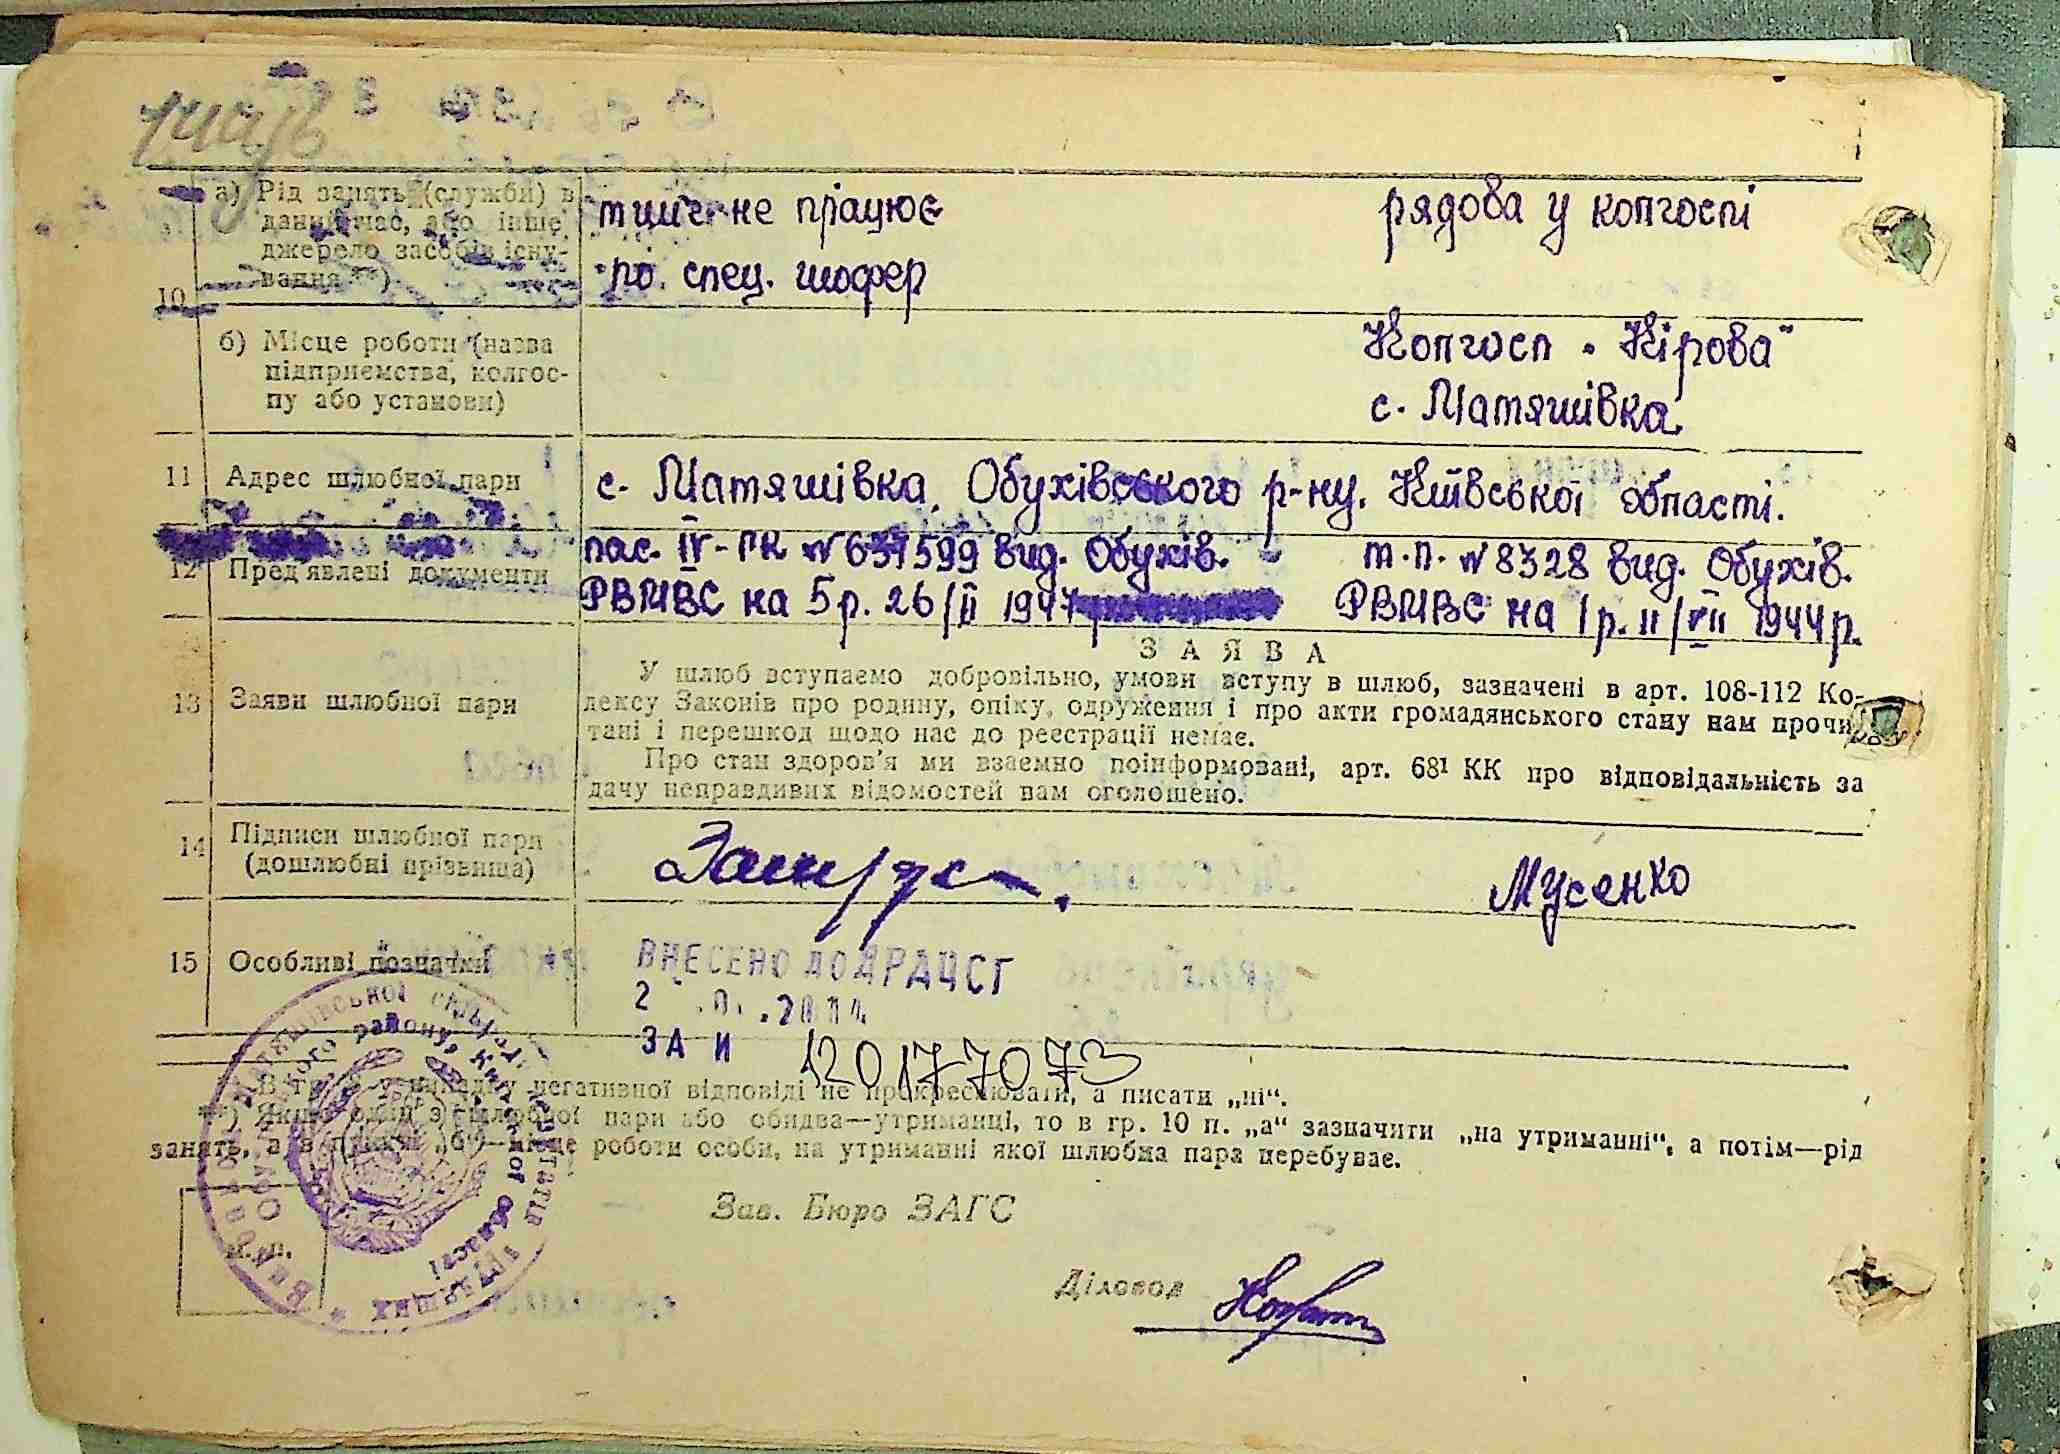 а) Рід занять (служби) в
даний час, або інше
джерело засобів існу-
вання **)
10
тимч. не працює
по спец. шофер
рядова у колгоспі
б) Місце роботи (назва
підприємства, колгос-
пу або установи)
Колгосп „Кірова"
с. Матяшівка
11 Адрес шлюбної пари
с. Матяшівка, Обухівського р-ну, Київської області.
12 Пред'явлені документи
пас. IV-ПК № 637599 вид. Обухів.
РВМВС на 5 р. 26/II 1947
т.п. № 8328 вид. Обухів.
РВМВС на 1 р. 11/VII 1944 р.
13 Заяви шлюбної пари
ЗАЯВА
У шлюб вступаємо добровільно, умови вступу в шлюб, зазначені в арт. 108-112 Ко-
дексу Законів про родину, опіку, одруження і про акти громадянського стану нам прочи-
тані і перешкод щодо нас до реєстрації немає.
Про стан здоров'я ми взаємно поінформовані, арт. 68¹ КК про відповідальність за
дачу неправдивих відомостей нам оголошено.
14 Підписи шлюбної пари
(дошлюбні прізвища)
Мусенко
15 Особливі позначки
ВНЕСЕНО ДО ДРАЦСГ
ЗА №
120177073
*) В гр. у випадку негативної відповіді не прокреслювати, а писати „ні".
**) Якщо один з шлюбної пари або обидва—утриманці, то в гр. 10 п. „а" зазначити „на утриманні", а потім—рід
занять, а в пункті „б"—місце роботи особи, на утриманні якої шлюбна пара перебуває.
М. П.
Зав. Бюро ЗАГС
Діловод